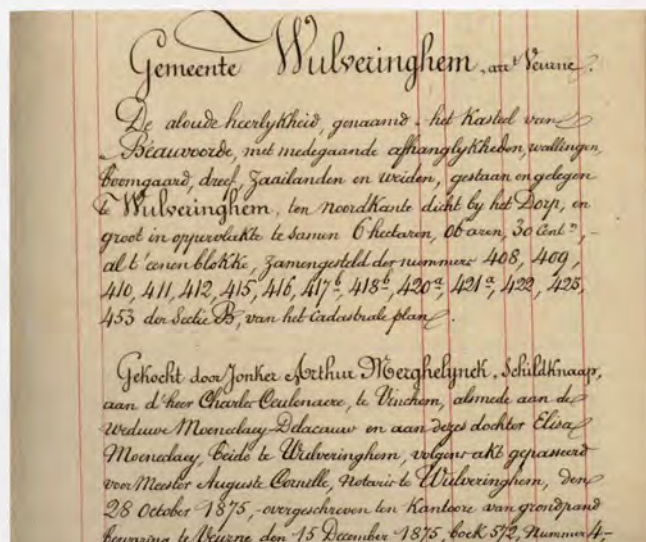 Gemeente Wulveringhem, arrt Veurne.
De aloude heerlykheid, genaamd - het Kasteel van
Beauvoorde, met medegaande afhanglykheden, wallingen,
boomgaard, dreef, Zaailanden en weiden, gestaan en gelegen
te Wulveringhem, ten noordkante dicht by het Dorp, en
groot in oppervlakte te samen 6 hectaren, 06 aren, 30 Centn, -
al t'eenen blokke, Zamengesteld der nummers 408, 409,
410, 411, 412, 415, 416, 417b, 418b, 420a, 421a, 422, 425,
453 der Sectie B, van het Cadastrale plan.
Gekocht door Jonker Arthur Merghelynck, Schildknaap,
aan d'heer Charles Ceulenaere, te Vinchem, alsmede aan de
Weduwe Moeneclaey-Delacauw en aan dezes dochter Elisa
Moeneclaey, beide te Wulveringhem, volgens akt gepasseerd
voor Meester Auguste Cornille, Notaris te Wulveringhem, den
28 October 1875, - overgeschreven ten Kantoore van grondpand
bewaring te Veurne den 15 December 1875, boek 572, Nummer 4-